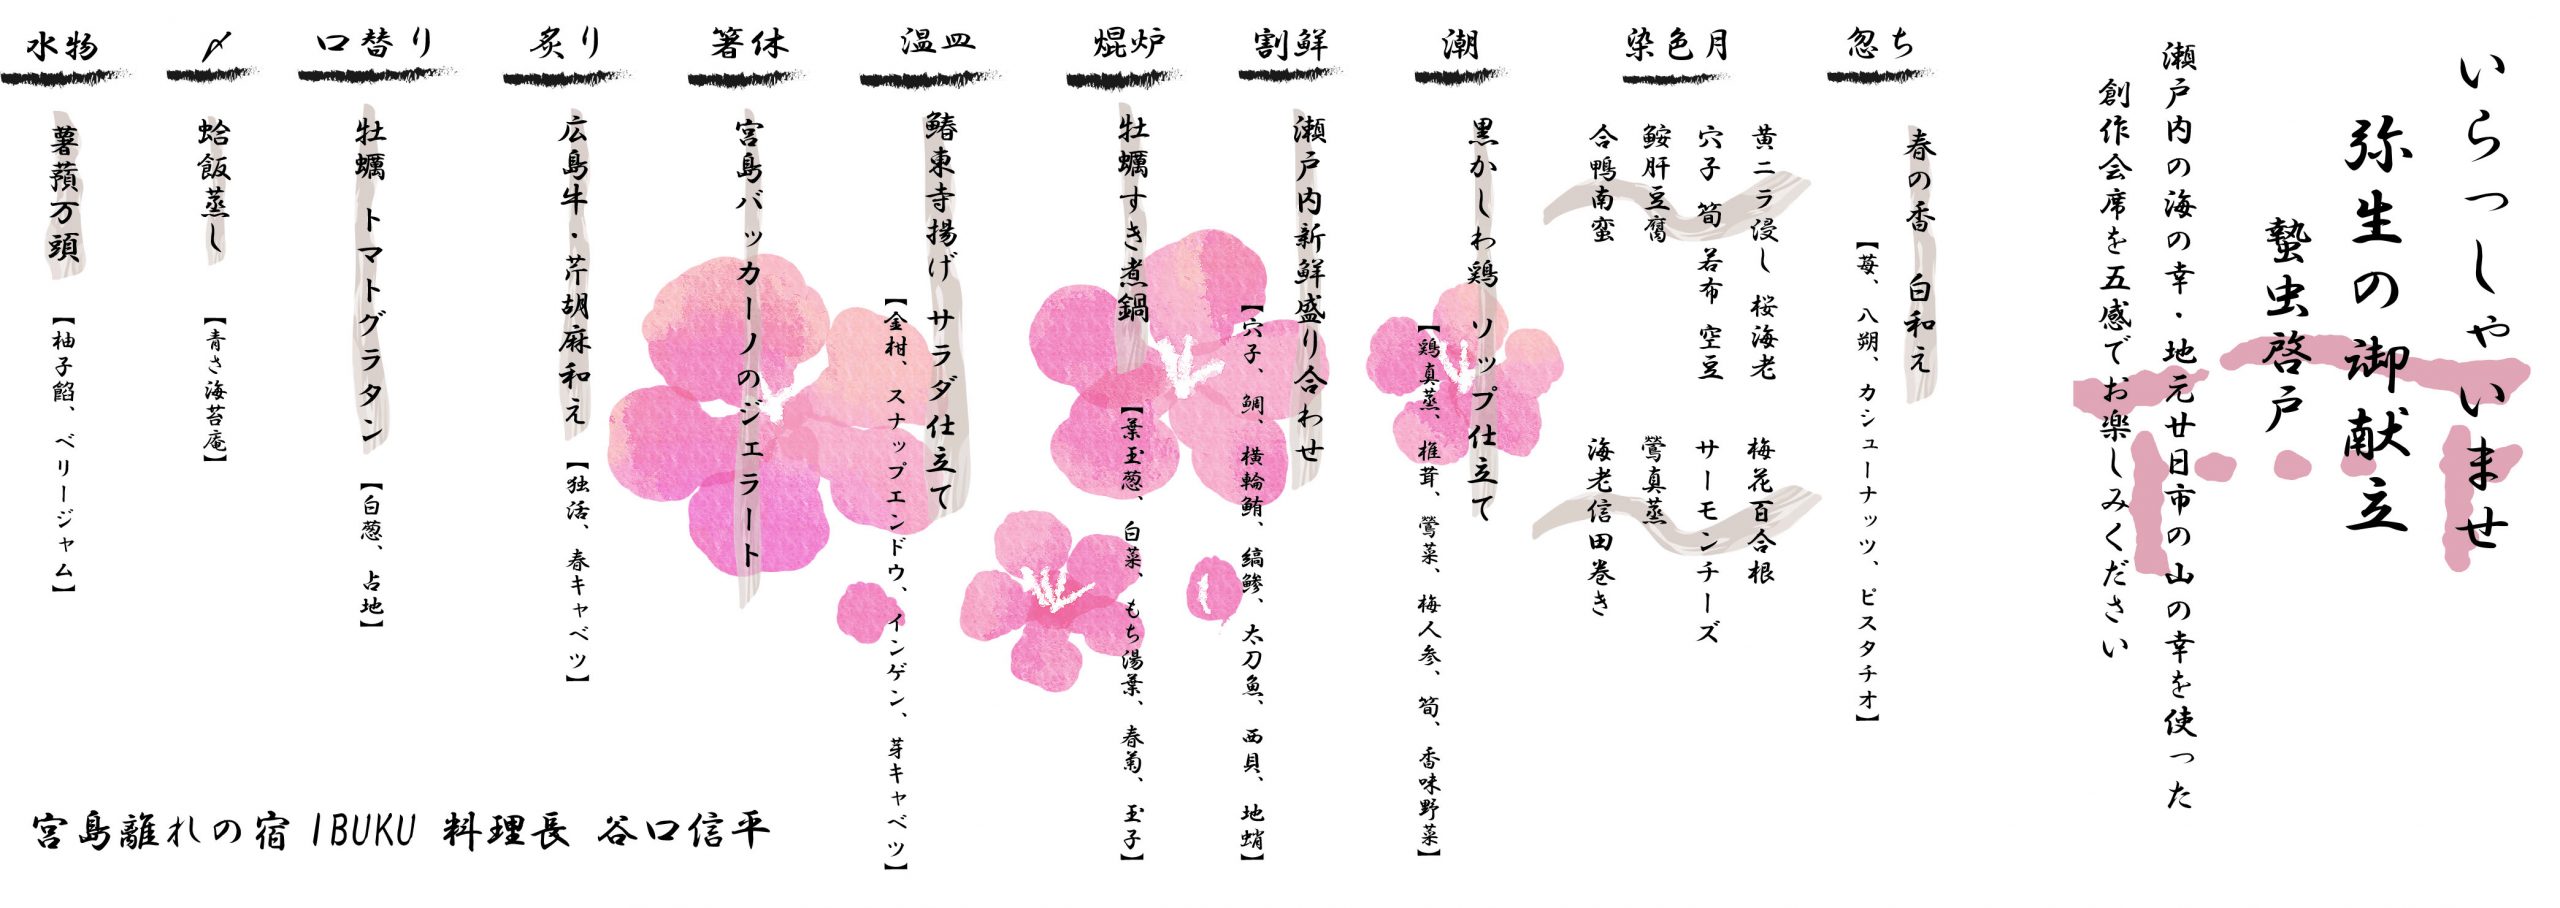 いらっしゃいませ
弥生の御献立
蟄虫啓戸
瀬戸内の海の幸・地元廿日市の山の幸を使った
創作会席を五感でお楽しみください
忽ち
春の香 白和え
【苺、八朔、カシューナッツ、ピスタチオ】
染色月
黄ニラ浸し 桜海老
穴子 筍 若布 空豆
鮟肝豆腐
合鴨南蛮
梅花百合根
サーモンチーズ
鶯真蒸
海老信田巻き
潮
黒かしわ鶏 ソップ仕立て
【鶏真蒸、椎茸、鶯菜、梅人参、筍、香味野菜】
割鮮
瀬戸内新鮮盛り合わせ
【穴子、鯛、横輪鮪、縞鯵、太刀魚、西貝、地蛸】
焜炉
牡蠣すき煮鍋
【葉玉葱、白菜、もち湯葉、春菊、玉子】
温皿
鰆東寺揚げ サラダ仕立て
【金柑、スナップエンドウ、インゲン、芽キャベツ】
箸休
宮島バッカーノのジェラート
炙り
広島牛・芹胡麻和え
【独活、春キャベツ】
口替り
牡蠣 トマトグラタン
【白葱、占地】
〆
蛤飯蒸し
【青さ海苔庵】
水物
薯蕷万頭
【柚子餡、ベリージャム】
宮島離れの宿 IBUKU 料理長 谷口信平